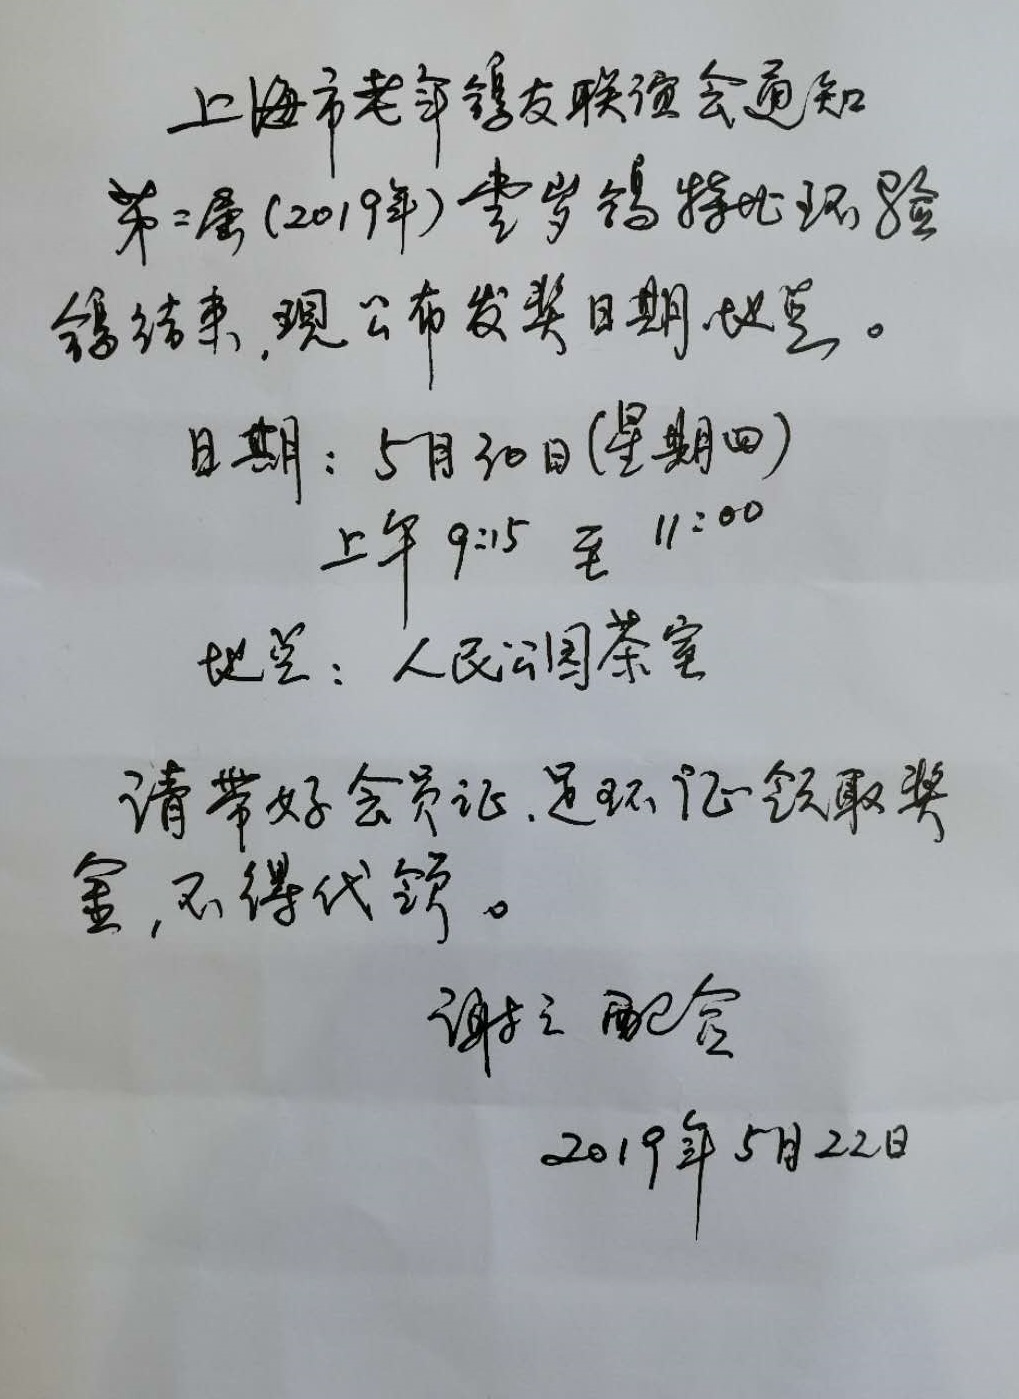 上海市老年鸽友联谊会通知
第二届(2019年)壹岁鸽特比环验
鸽结束,现公布发奖日期、地点。
日期:5月30日(星期四)
上午9:15至11:00
地点:人民公园茶室
请带好会员证、足环证领取奖
金,不得代领。
谢之配合
2019年5月22日